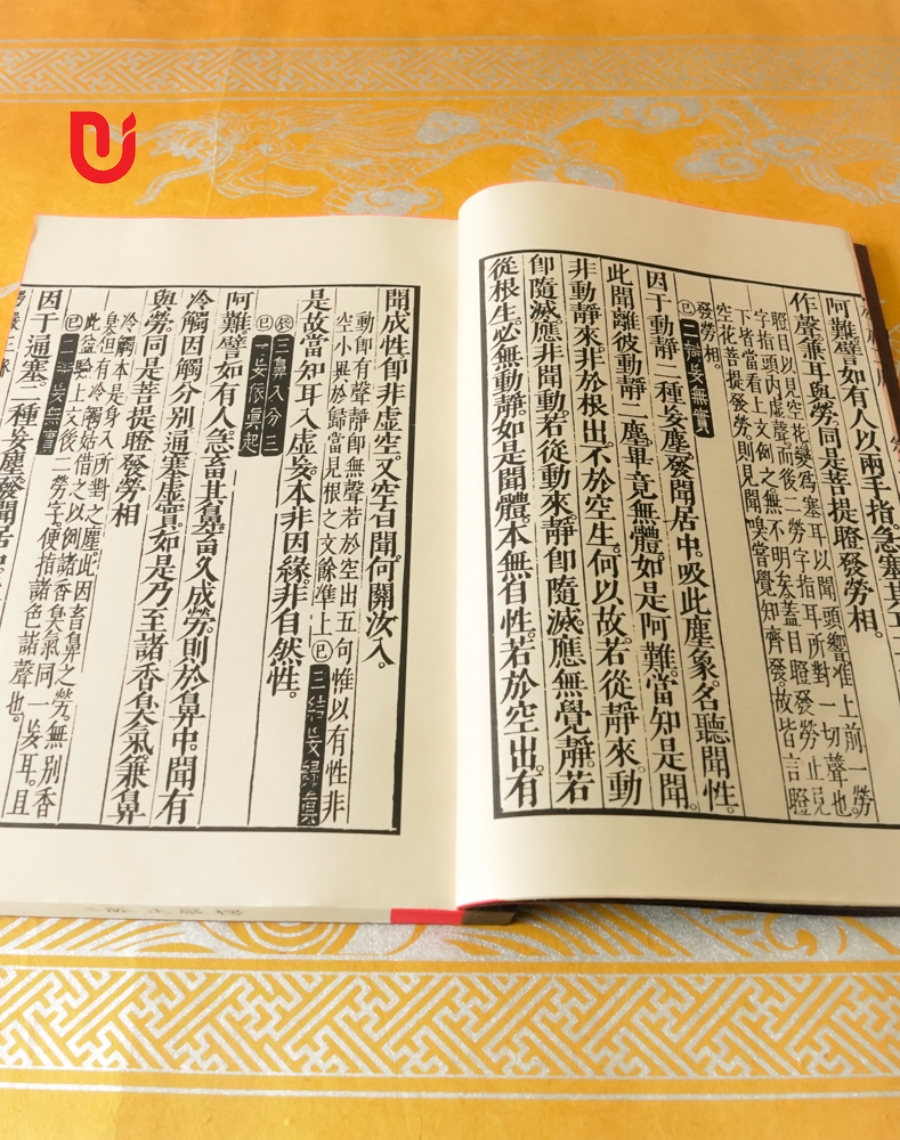 阿難譬如有人以兩手指。急塞其
作聲兼耳與勞。同是菩提瞪發勞相。
瞪目以見空花。變爲塞耳以聞頭響。惟上前一勞
字指頭内虛聲。而後二勞字指耳所對一切聲也。
下皆當看上文例之無不明矣。蓋目瞪發勞止見
空花。菩提發勞。則見聞嗅嘗覺知齊發。故皆言瞪
發勞相。
巳二辯妄無實
因于動靜二種妄塵。發聞居中。吸此塵象。名聽聞性。
此聞離彼動靜二塵。畢竟無體。如是阿難。當知是聞。
非動靜來。非於根出。不於空生。何以故。若從靜來。動
卽隨滅。應非聞動。若從動來。靜卽隨滅。應無覺靜。若
從根生。必無動靜。如是聞體。本無自性。若於空出。有
聞成性。卽非虛空。又空自聞。何關汝入。
動卽有聲。靜卽無聲。若於空出五句。惟以有性非
空。小異於歸當見根之文。餘準上。巳三結妄歸真
是故當知耳入虛妄。本非因緣。非自然性。
辰三鼻入分三
巳一妄依眞起
阿難。譬如有人急畜其鼻。畜久成勞。則於鼻中。聞有
冷觸。因觸分別通塞虛實。如是乃至諸香臭氣。兼鼻
與勞。同是菩提瞪發勞相
冷觸本是身入所對之塵。此因畜鼻之勞。無別香
臭。但有冷觸。姑借之以例諸香臭氣。同一妄耳。且
此益驗上文後二勞字。便指諸色諸聲也。
巳二辯妄無實
因于通塞。二種妄塵。發聞居